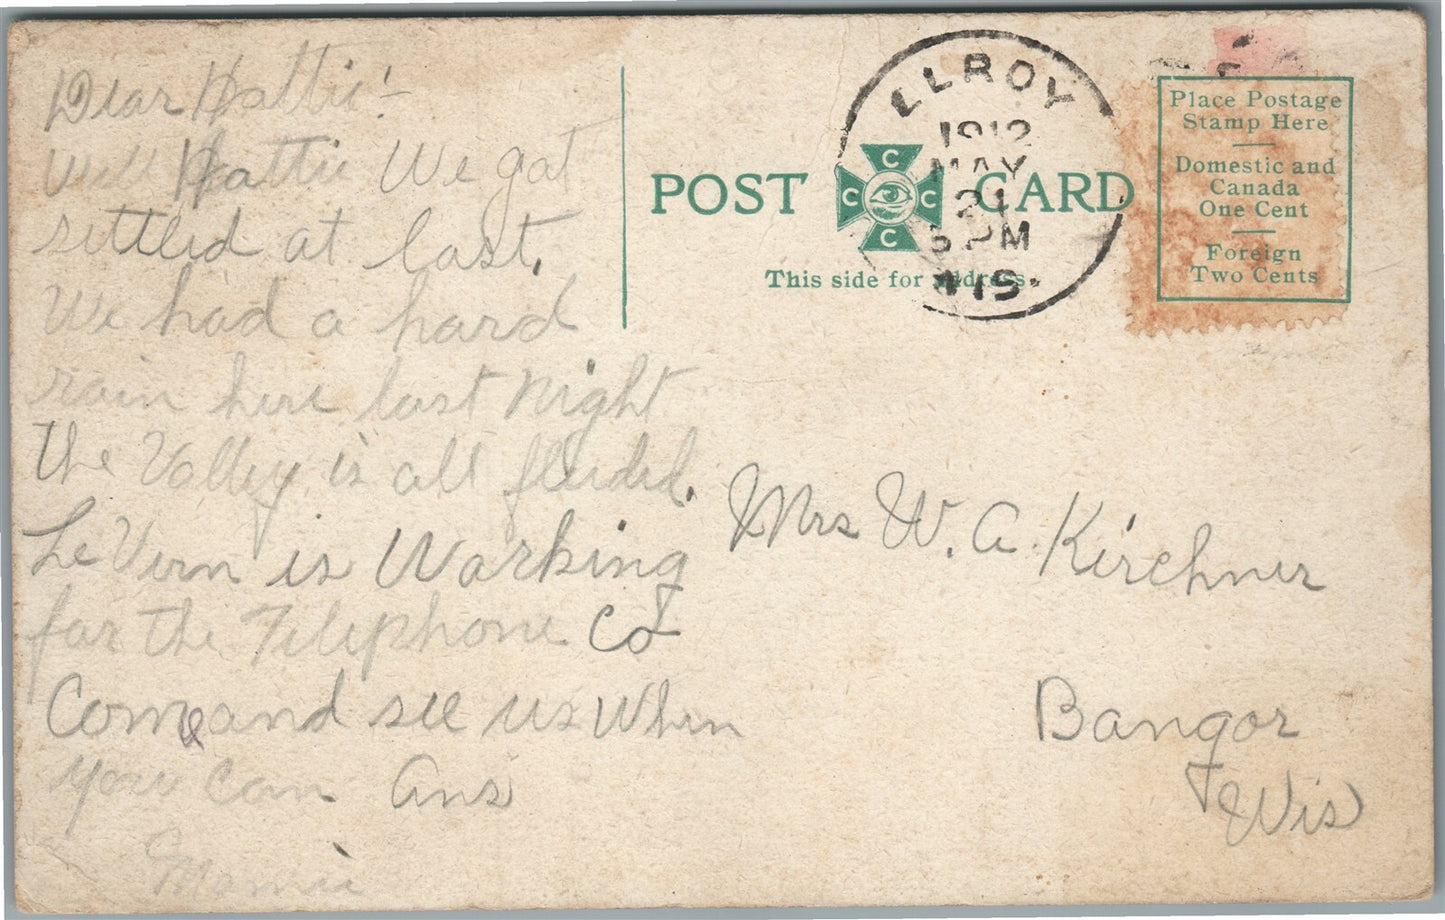 Dear Hattie:-
Well Hattie We got
settled at last.
We had a hard
rain here last night
the Valley is all fleided.
LeVern is Working
for the Telephone Co
Come and see us When
you can Ans
Mamie
POST CARD
C
C C
C
This side for address.
ELROY
1912
MAY
21
PM
WIS.
Place Postage
Stamp Here
Domestic and
Canada
One Cent
Foreign
Two Cents
Mrs W. A. Kirchner
Bangor
Wis